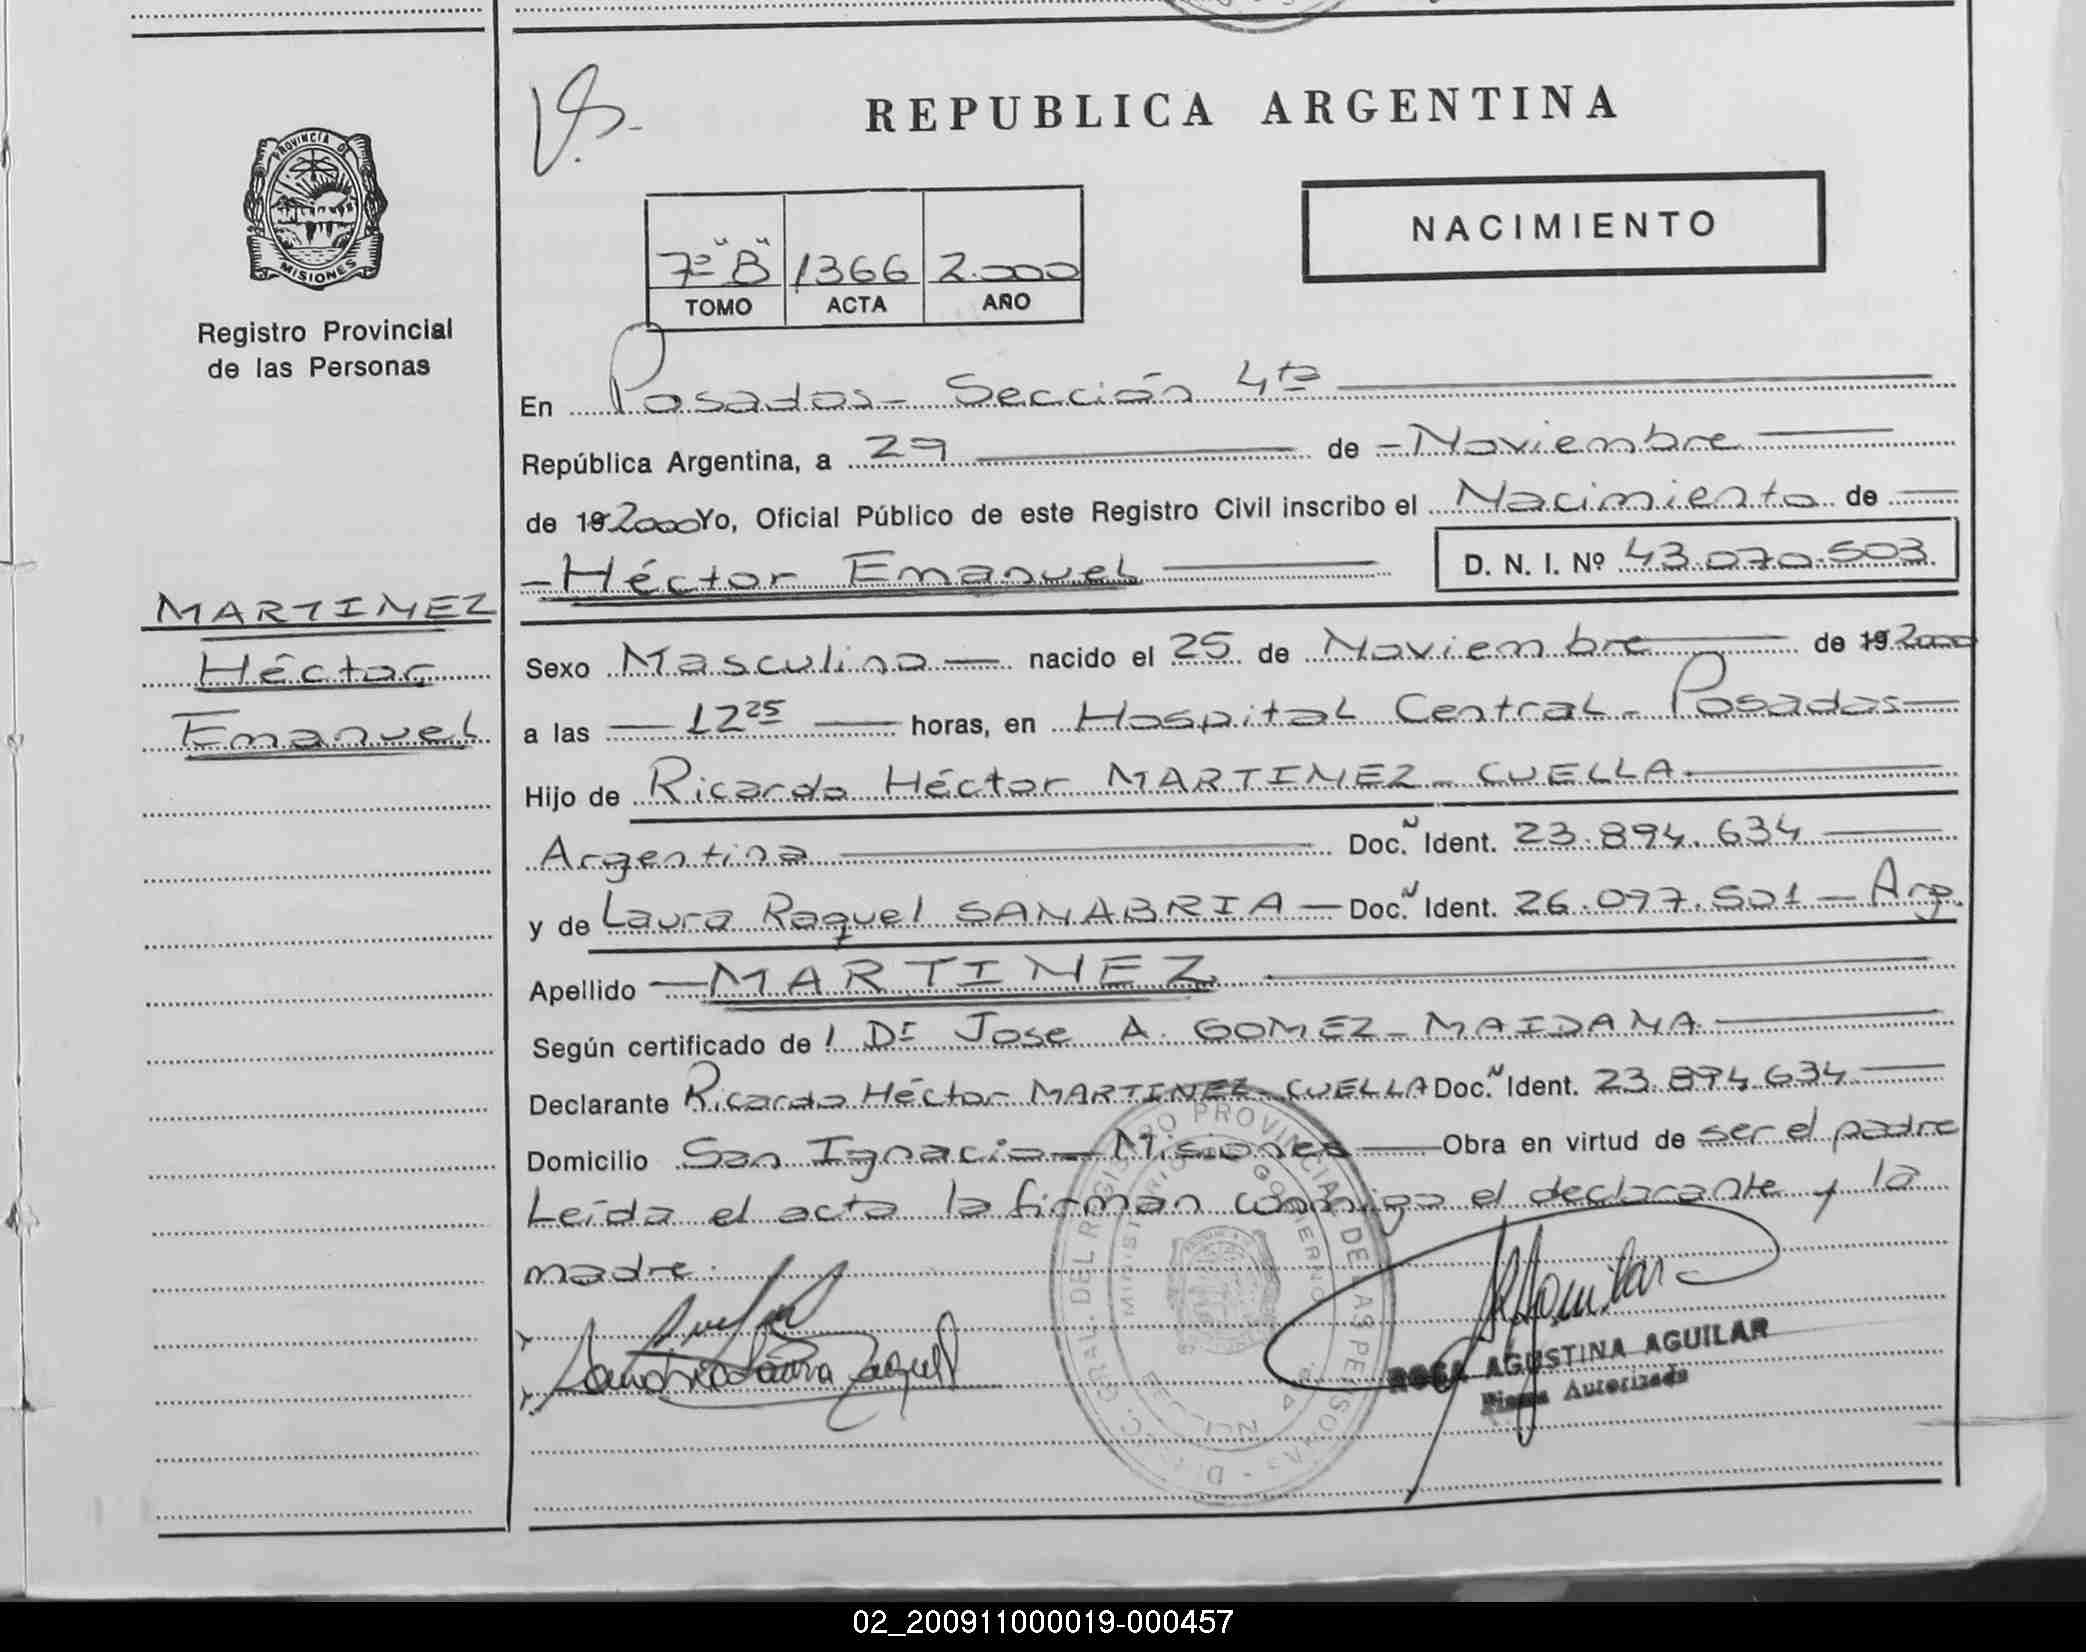 REPUBLICA ARGENTINA
PROVINCIA DE
MISIONES
Registro Provincial
de las Personas
NACIMIENTO
7º "B" 1366 2.000
TOMO ACTA AÑO
En Posadas - Sección 4ta
República Argentina, a 29 de - Noviembre
de 19 2000 Yo, Oficial Público de este Registro Civil inscribo el Nacimiento de
- Héctor Emanuel D. N. I. Nº 43.070.503.
MARTINEZ
Héctor
Emanuel
Sexo Masculino nacido el 25 de Noviembre de 19 2000
a las 12 25 horas, en Hospital Central - Posadas
Hijo de Ricardo Héctor MARTINEZ - CUELLA
Argentina Doc. N Ident. 23.894.634
y de Laura Raquel SANABRIA - Doc. N Ident. 26.097.501 - Arg.
Apellido - MARTINEZ
Según certificado de l Dr Jose A. GOMEZ - MAIDANA
Declarante Ricardo Héctor MARTINEZ - CUELLA Doc. N Ident. 23.894.634
Domicilio San Ignacio - Misiones Obra en virtud de ser el padre
Leída el acta la firman conmigo el declarante y la
madre.
Sanabria Laura Raquel
ROSA AGUSTINA AGUILAR
Firma Autorizada
GRAL. DEL REGISTRO PROVINCIAL DE LAS PERSONAS
MINISTERIO DE GOBIERNO
02_200911000019-000457